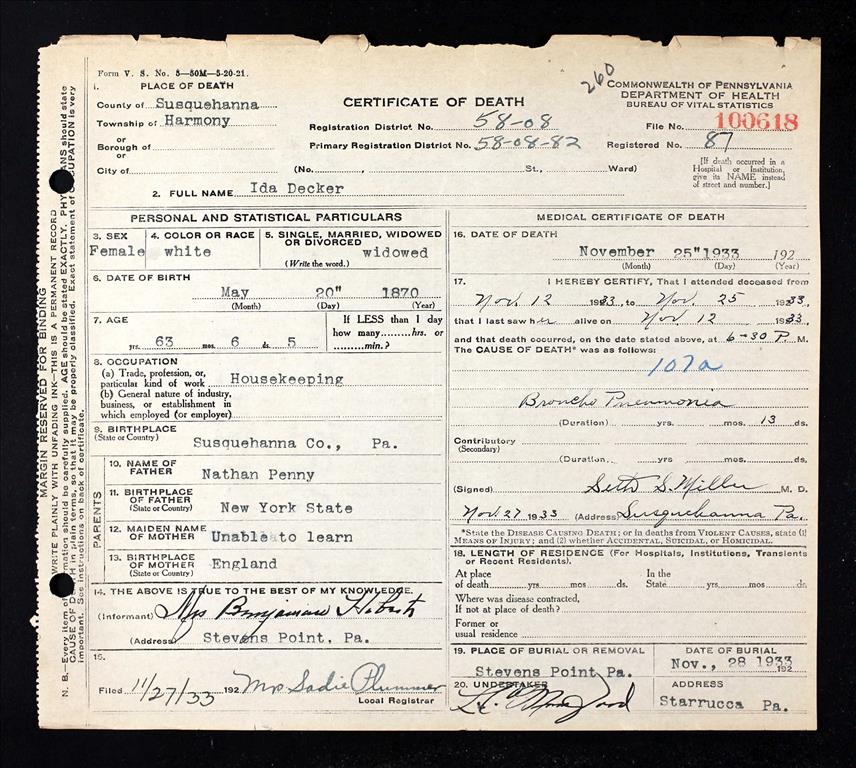 Form V. S. No. 5—50M—5-20-21.
260
1. PLACE OF DEATH
County of Susquehanna
Township of Harmony
or
Borough of
or
City of
CERTIFICATE OF DEATH
Registration District No. 58-08
Primary Registration District No. 58-08-82
(No. , St., Ward)
COMMONWEALTH OF PENNSYLVANIA
DEPARTMENT OF HEALTH
BUREAU OF VITAL STATISTICS
File No. 100618
Registered No. 87
[If death occurred in a
Hospital or Institution,
give its NAME instead
of street and number.]
2. FULL NAME Ida Decker
PERSONAL AND STATISTICAL PARTICULARS
3. SEX
Female
4. COLOR OR RACE
white
5. SINGLE, MARRIED, WIDOWED
OR DIVORCED
widowed
(Write the word.)
6. DATE OF BIRTH
May 20" 1870
(Month) (Day) (Year)
7. AGE
63 yrs. 6 mos. 5 ds.
If LESS than 1 day
how many........hrs. or
.........min.?
8. OCCUPATION
(a) Trade, profession, or,
particular kind of work Housekeeping
(b) General nature of industry,
business, or establishment in
which employed (or employer)
9. BIRTHPLACE
(State or Country)
Susquehanna Co., Pa.
PARENTS
10. NAME OF
FATHER
Nathan Penny
11. BIRTHPLACE
OF FATHER
(State or Country)
New York State
12. MAIDEN NAME
OF MOTHER
Unable to learn
13. BIRTHPLACE
OF MOTHER
(State or Country)
England
14. THE ABOVE IS TRUE TO THE BEST OF MY KNOWLEDGE.
(Informant) Mrs Benjamin
(Address) Stevens Point, Pa.
15.
Filed 11/27/33 192 Mrs Sadie Plummer
Local Registrar
MEDICAL CERTIFICATE OF DEATH
16. DATE OF DEATH
November 25" 1933 192
(Month) (Day) (Year)
17. I HEREBY CERTIFY, That I attended deceased from
Nov. 12 1933, to Nov. 25 1933,
that I last saw her alive on Nov 12 1933,
and that death occurred, on the date stated above, at 6-30 P. M.
The CAUSE OF DEATH* was as follows:
107a
Broncho Pneumonia
(Duration) yrs. mos. 13 ds.
Contributory
(Secondary)
(Duration) yrs. mos. ds.
(Signed) Seth S. Miller M. D.
Nov. 27 1933 (Address) Susquehanna Pa.
*State the DISEASE CAUSING DEATH; or in deaths from VIOLENT CAUSES, state (1)
MEANS OF INJURY; and (2) whether ACCIDENTAL, SUICIDAL, or HOMICIDAL.
18. LENGTH OF RESIDENCE (For Hospitals, Institutions, Transients
or Recent Residents).
At place In the
of death yrs. mos. ds. State yrs. mos. ds.
Where was disease contracted,
If not at place of death?
Former or
usual residence
19. PLACE OF BURIAL OR REMOVAL
Stevens Point, Pa.
DATE OF BURIAL
Nov., 28 1933
192
20. UNDERTAKER
ADDRESS
Starrucca Pa.
MARGIN RESERVED FOR BINDING
WRITE PLAINLY WITH UNFADING INK—THIS IS A PERMANENT RECORD